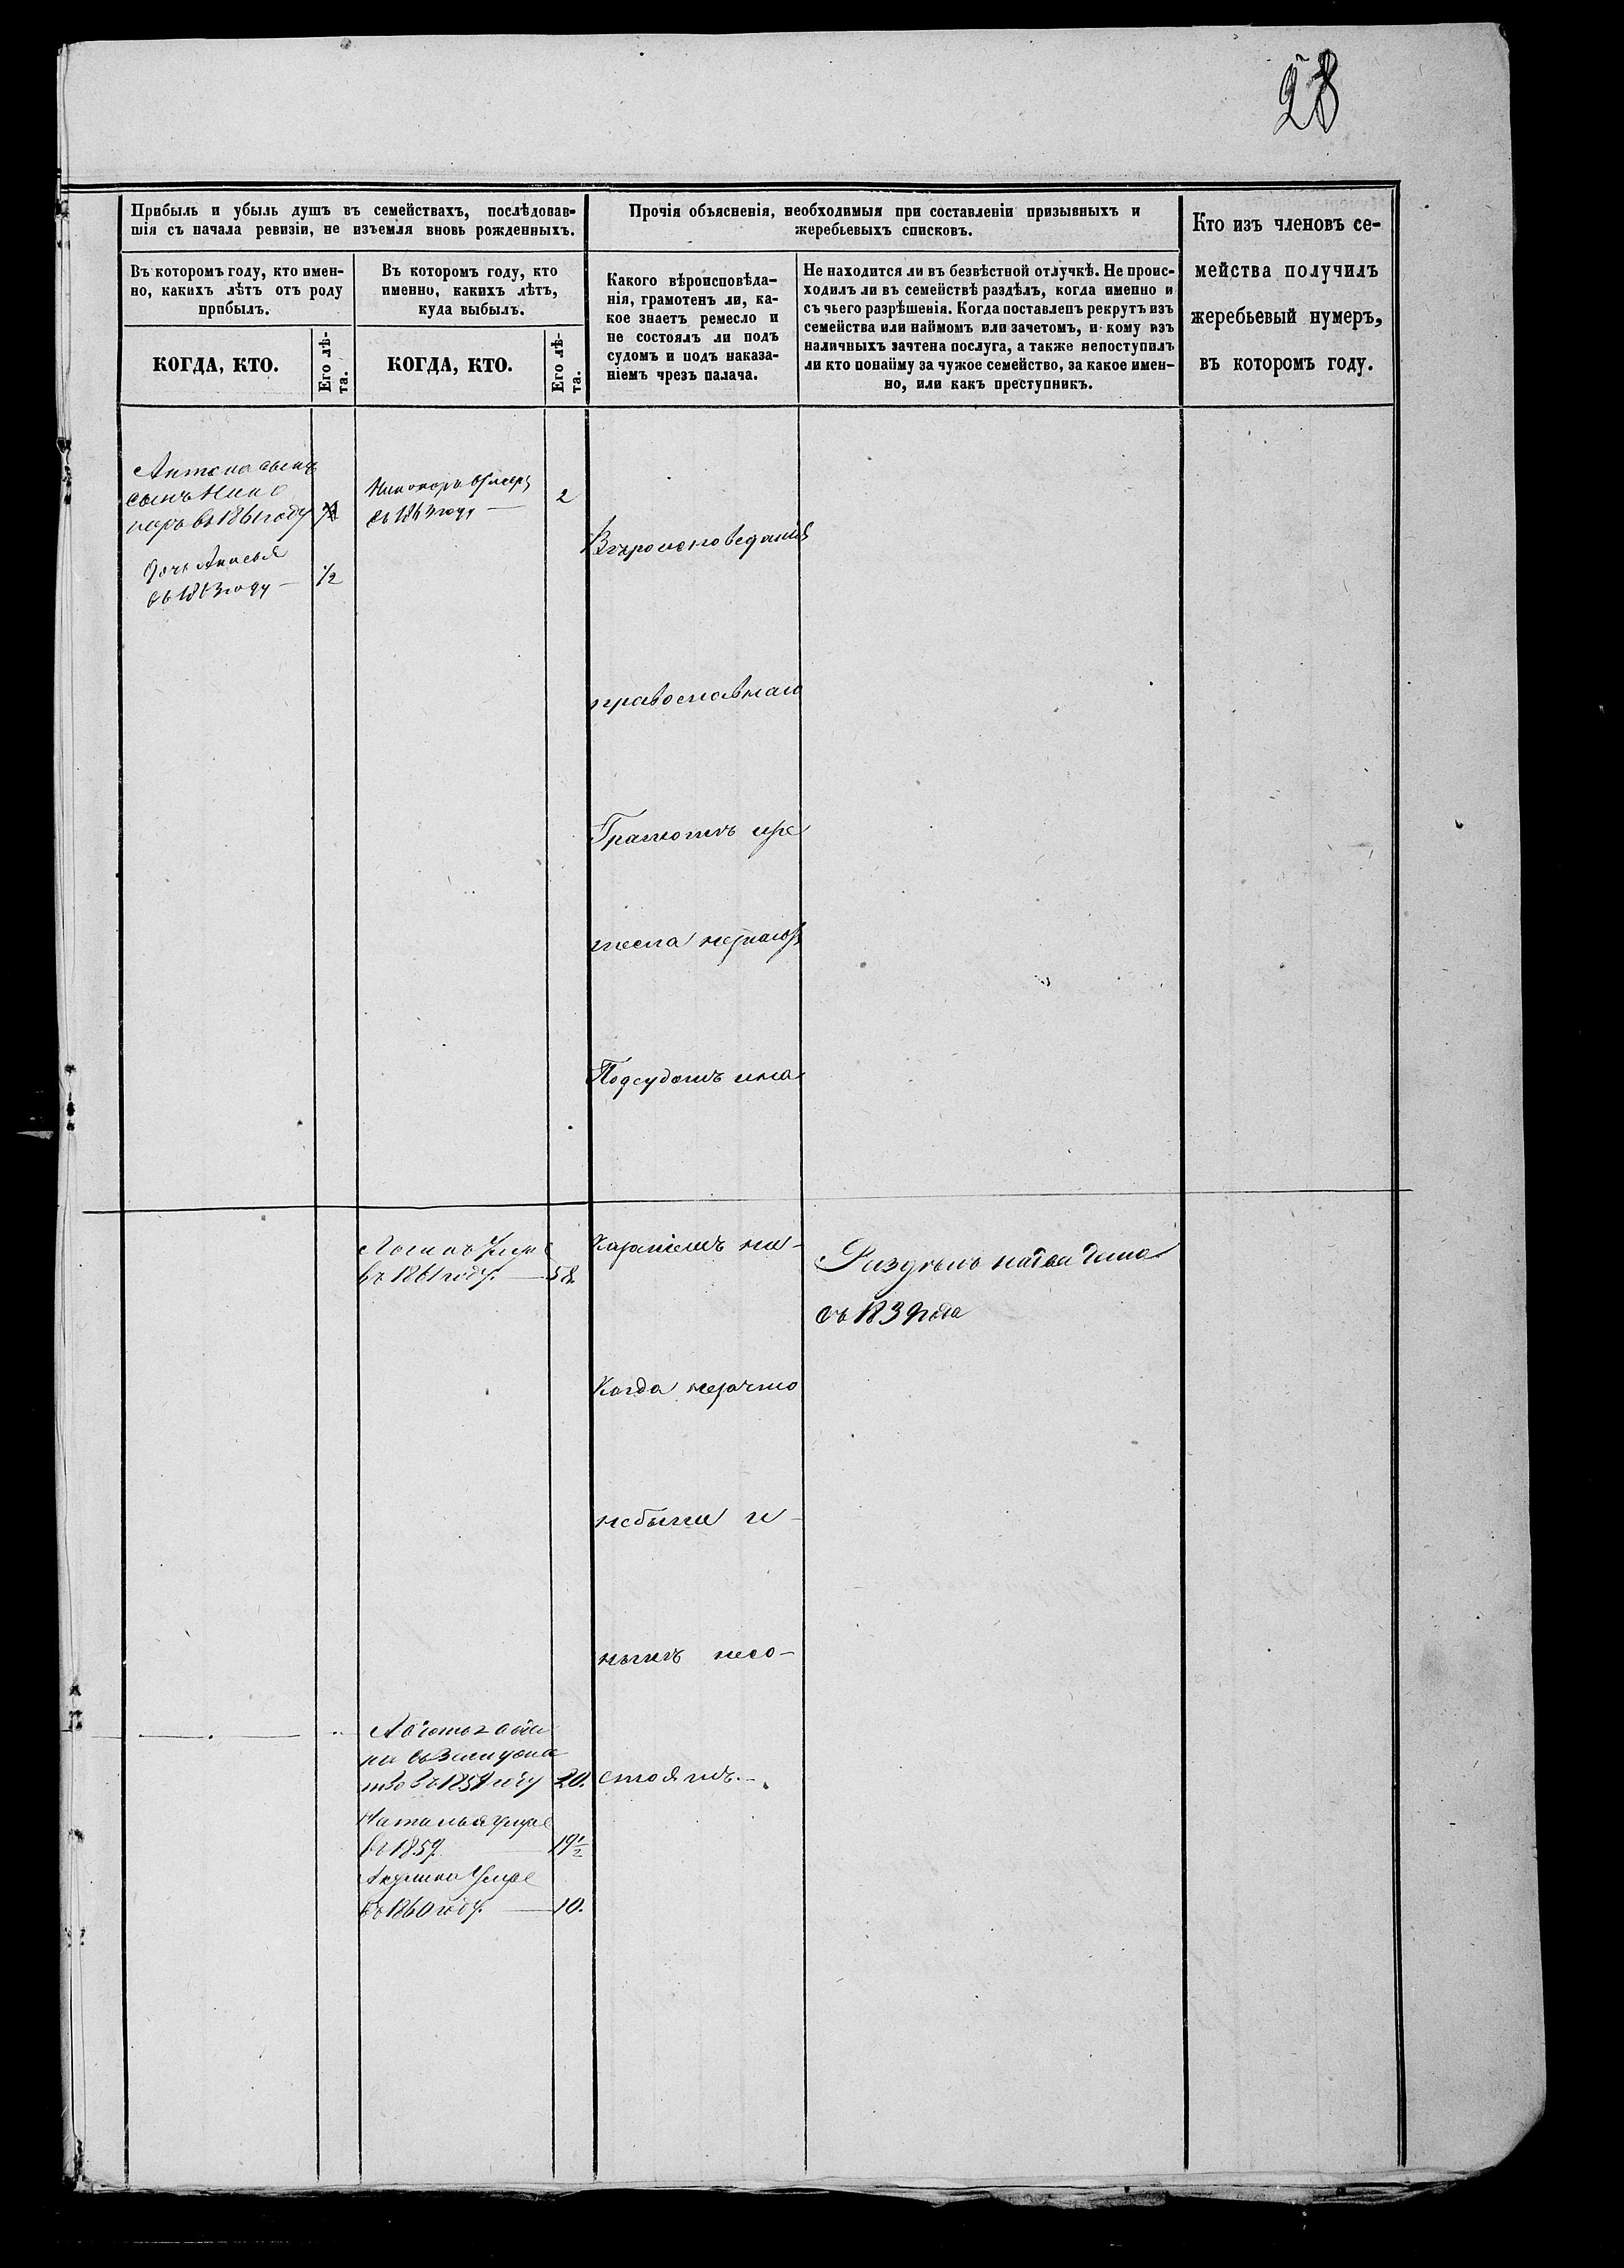 28
Прибыль и убыль душъ въ семействахъ, послѣдовав-
шія съ начала ревизіи, не изъемля вновь рожденныхъ.
Прочія объясненія, необходимыя при составленіи призывныхъ и
жеребьевыхъ списковъ.
Кто изъ членовъ се-
мейства получилъ
жеребьевый нумеръ,
въ которомъ году.
Въ которомъ году, кто имен-
но, какихъ лѣтъ отъ роду
прибылъ.
Въ которомъ году, кто
именно, какихъ лѣтъ,
куда выбылъ.
Какого вѣроисповѣда-
нія, грамотенъ ли, ка-
кое знаетъ ремесло и
не состоялъ ли подъ
судомъ и подъ наказа-
ніемъ чрезъ палача.
Не находится ли въ безвѣстной отлучкѣ. Не проис-
ходилъ ли въ семействѣ раздѣлъ, когда именно и
съ чьего разрѣшенія. Когда поставленъ рекрутъ изъ
семейства или наймомъ или зачетомъ, и кому изъ
наличныхъ зачтена послуга, а также непоступилъ
ли кто понайму за чужое семейство, за какое имен-
но, или какъ преступникъ.
КОГДА, КТО.
Его лѣ-
та.
КОГДА, КТО.
Его лѣ-
та.
Антона сынъ
сынъ Нико
норъ въ 1861 году
дочь
въ 1863 году — 1/2
Никоноръ умеръ
въ 1863 году — 2
Вѣроисповеданія
православнаго
Грамотѣ и ре
месла незнаютъ
Подсудомъ и на
казаніемъ ни-
когда незачто
небыли и
нынѣ несо-
стоятъ.
умре
въ 1861 году. — 58.
Раздѣлъ
съ 1839 года
въ замужес
тво въ 1859 году 20.
Наталья умре
въ 1859. — 19 1/2
Акулина Умре
въ 1860 году. — 10.